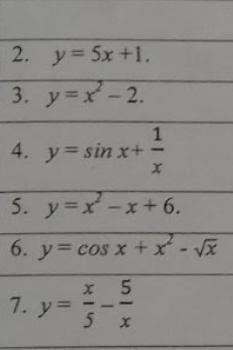 2. y = 5x +1.
3. y = x² – 2.
4. y = sin x + 1/x
5. y = x² – x + 6.
6. y = cos x + x² - √x
7. y = x/5 – 5/x